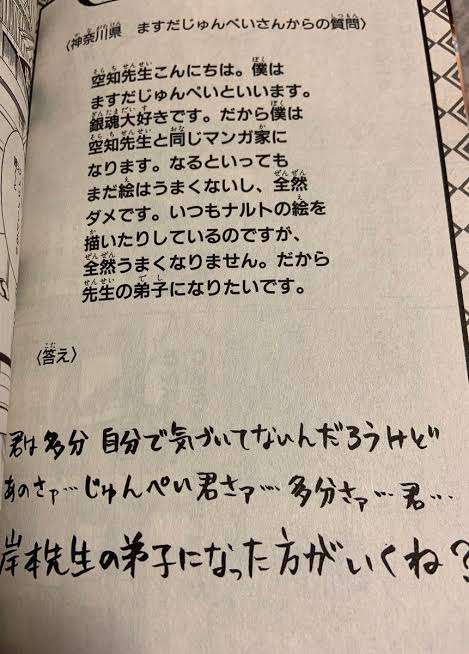 〈神奈川県　ますだじゅんぺいさんからの質問〉
空知先生こんにちは。僕は
ますだじゅんぺいといいます。
銀魂大好きです。だから僕は
空知先生と同じマンガ家に
なります。なるといっても
まだ絵はうまくないし、全然
ダメです。いつもナルトの絵を
描いたりしているのですが、
全然うまくなりません。だから
先生の弟子になりたいです。
〈答え〉
君は多分 自分で気づいてないんだろうけど
あのさァ…じゅんぺい君さァ…多分さァ…君…
岸本先生の弟子になった方がいくね?